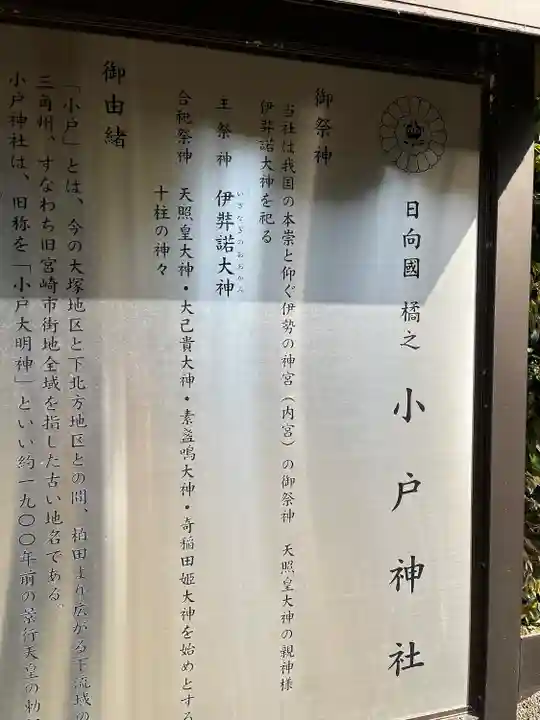 日向國 橘之 小戸神社
御祭神
当社は我国の本崇と仰ぐ伊勢の神宮(内宮)の御祭神 天照皇大神の親神様
伊弉諾大神を祀る
主祭神 伊弉諾大神
いざなぎのおおかみ
合祀祭神 天照皇大神・大己貴大神・素盞嗚大神・奇稲田姫大神を始めとする
十柱の神々
御由緒
「小戸」とは、今の大塚地区と下北方地区との間、柏田より広がる下流域の
三角州、すなわち旧宮崎市街地全域を指した古い地名である。
小戸神社は、旧称を「小戸大明神」といい約一九〇〇年前の景行天皇の勅